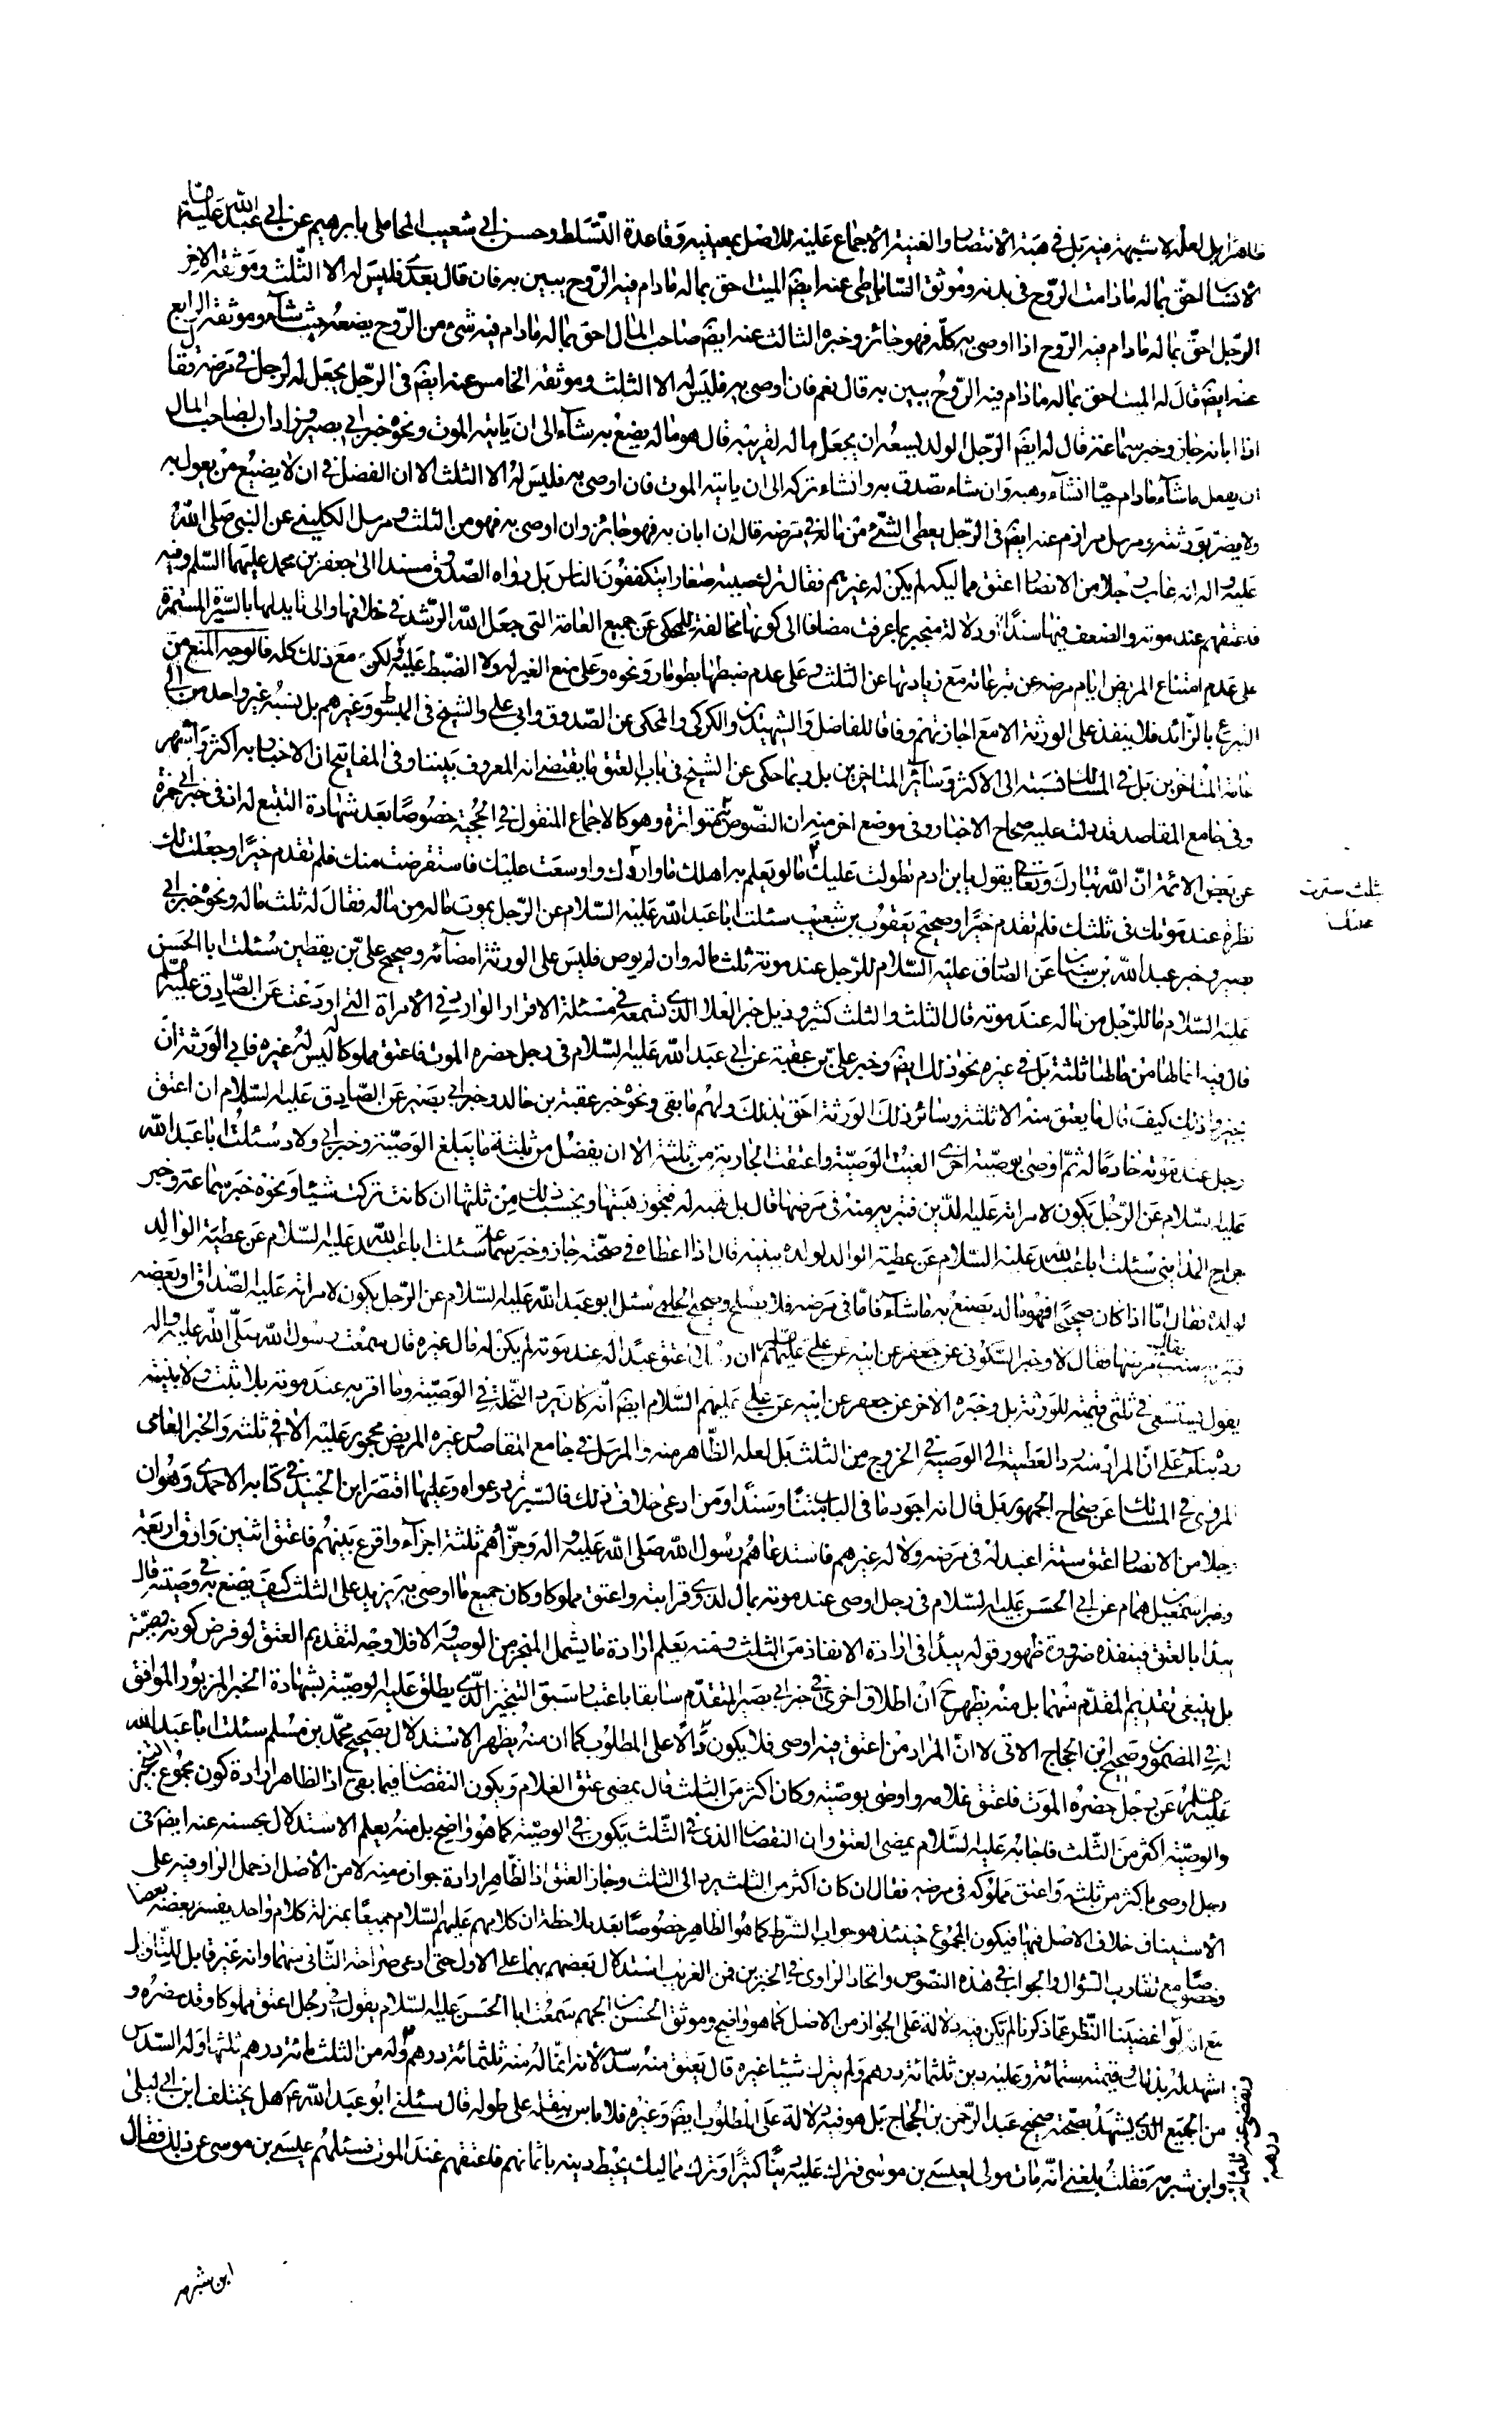 ظاهرا بل لعله لا شبهة فيه بل في هبة الانتصار والغنية الاجماع عليه للاصل بمعنييه وقاعدة التسلط وحسن ابي شعيب المحاملي بابرهيم عن ابي عبد الله عليه
الانسان احق بماله مادامت الروح في بدنه وموثق الساباطي عنه ايضم الميت احق بماله مادام فيه الروح يبين به فان قال بعدي فليس له الا الثلث وموثقه الاخر
الرجل احق بماله مادام فيه الروح اذا اوصى به كله فهو جائز وخبره الثالث عنه ايضم صاحب المال احق بماله مادام فيه شئ من الروح يضعه حيث شاء وموثقه الرابع
عنه ايضم قال له الميت احق بماله مادام فيه الروح يبين به قال نعم فان اوصى به فليس له الا الثلث وموثقه الخامس عنه ايضم في الرجل يجعل له لرجل في مرضه فقال
اذا ابانه جاز وخبر سماعة قال له ايضم الرجل الولد ايسعه ان يجعل ماله لقرابته قال هو ماله يصنع به شاء الى ان ياتيه الموت ونحوه خبر ابي بصير وزاد ان لصاحب المال
ان يفعل ما شاء مادام حيا انشاء وهبه وان شاء تصدق به وانشاء تركه الى ان ياتيه الموت فان اوصى به فليس له الا الثلث الا ان الفضل في ان لا يضيع من يعول به
ولا يضر بورثته ومرسل مرازم عنه ايضم في الرجل يعطى الشئ من ماله في مرضه قال ان ابان به فهو جائز وان اوصى به فهو من الثلث ومرسل الكليني عن النبي صلى الله
عليه واله انه عاب رجلا من الانصار اعتق مماليكه لم يكن له غيرهم فقال ترك صبية صغارا يتكففون الناس بل رواه الصدوق مسندا الى جعفر بن محمد عليهما السلم وفيه
فدعتقهم عند موته والضعف فيها سندا او دلالة منجبر بما عرفت مضافا الى كونها مخالفة للمحكى عن جميع العامة التي جعل الله الرشد في خلافها والى تاييدها بالسيرة المستمرة
على عدم امتناع المريض ايام مرضه عن تبرعاته مع زيادتها عن الثلث وعلى عدم ضبطها بطومار ونحوه وعلى منع الغير له ولا الضبط عليه ولكن مع ذلك كله فالوجه المنع من
التبرع بالزائد فلا ينفذ على الورثة الا مع اجازتهم وفاقا للفاضل والشهيدين والكركي والمحكى عن الصدوق وابي علي والشيخ في المبسوط وغيرهم بل نسبه غير واحد منهم الى
عامة المتاخرين بل في المسالك نسبته الى الاكثر وسائر المتاخرين بل ربما حكى عن الشيخ في باب العتق ما يقتضي انه المعروف بيننا وفي المفاتيح ان الاخبار به اكثر واشهر
وفي جامع المقاصد قد دلت عليه صحاح الاخبار وفي موضع اخر منه ان النصوص به متواترة وهو كالاجماع المنقول في الحجية خصوصا بعد شهادة التتبع له اذ في خبر ابي حمزة
عن بعض الائمة ان الله تبارك وتعالى يقول يا بن ادم تطولت عليك ما لو يعلم به اهلك ما واروك واوسعت عليك فاستقرضت منك فلم تقدم خيرا وجعلت لك
نظرة عند موتك في ثلثك فلم تقدم خيرا وصحيح يعقوب بن شعيب سئلت ابا عبد الله عليه السلام عن الرجل يموت ماله من ماله فقال له ثلث ماله ونحوه خبر ابي
بصير وخبر عبد الله بن سنان عن الصادق عليه السلام للرجل عند موته ثلث ماله وان لم يوص فليس على الورثة امضائه وصحيح علي بن يقطين سئلت ابا الحسن
عليه السلام ما للرجل من ماله عند موته قال الثلث والثلث كثير وذيل خبر العلا الذي تسمعه في مسئلة الاقرار الوارد في الامراة التي اودعت عن الصادق عليه
قال فيه انما لها من مالها ثلثه بل في غيره نحو ذلك ايضم وخبر علي بن عقبة عن ابي عبد الله عليه السلام في رجل حضره الموت فاعتق مملوكا له ليس له غيره فابى الورثة ان
يجيزوا ذلك كيف قال ما يعتق منه الا ثلثه وسائر ذلك الورثة احق بذلك ولهم ما بقى ونحوه خبر عقبة بن خالد وخبر ابي بصير عن الصادق عليه السلام ان اعتق
رجل عند موته خادما له ثم اوصى بوصية اخرى الغيت الوصية واعتقت الجارية من ثلثه الا ان يفضل من ثلثه ما يبلغ الوصية وخبر ابي ولاد سئلت ابا عبد الله
عليه السلام عن الرجل يكون لامراته عليه الدين فتبريه منه في مرضها قال بل تهبه له فتجوز هبتها ويحسب ذلك من ثلثها ان كانت تركت شيئا ونحوه خبر سماعة وخبر
جراح المدايني سئلت ابا عبد الله عليه السلام عن عطية الوالد لولده ببينه قال اذا اعطاه في صحته جاز وخبر سماعة سئلت ابا عبد الله عليه السلام عن عطية الوالد
لولده فقال اما اذا كان صحيحا فهو ماله يصنع به ما شاء فاما في مرضه فلا يصلح وصحيح الحلبي سئل ابو عبد الله عليه السلام عن الرجل يكون لامراته عليه الصداق او بعضه
فتبريه منه في مرضها فقال لا وخبر السكوني عن جعفر عن ابيه عن علي عليهم السلم ان رجلا اعتق عبدا له عند موته لم يكن له مال غيره قال سمعت رسول الله صلى الله عليه واله
يقول يستسعى في ثلثي قيمته للورثة بل وخبره الاخر عن جعفر عن ابيه عن علي عليهم السلام ايضم انه كان يرد النحلة في الوصية وما اقر به عند موته بلا ثبت ولا بينة
رده بناء على ان المراد منه رد العطية الى الوصية في الخروج من الثلث بل لعله الظاهر منه والمرسل في جامع المقاصد وغيره المريض محجور عليه الا في ثلثه والخبر العامي
المروي في المسالك عن صحاح الجمهور بل قال انه اجود ما في الباب متنا وسندا ومن ادعى خلاف ذلك فالسبر يرد دعواه وعليها اقتصر ابن الجنيد في كتابه الاحمدي وهو ان
رجلا من الانصار اعتق ستة اعبد له في مرضه ولا له غيرهم فاستدعاهم رسول الله صلى الله عليه واله وجزاهم ثلثة اجزاء واقرع بينهم فاعتق اثنين وارق اربعة
وخبر اسمعيل بن همام عن ابي الحسن عليه السلام في رجل اوصى عند موته بمال لذوي قرابته واعتق مملوكا وكان جميع ما اوصى به يزيد على الثلث كيف يصنع به في وصيته قال
يبدا بالعتق فينفذه ضرورة ظهور قوله يبدا في ارادة الانفاذ من الثلث ومنه يعلم ارادة ما يشمل المنجز من الوصية والا فلا وجه لتقديم العتق لو فرض كونه وصية
بل ينبغي تقديم المقدم منهما بل منه يظهر ح ان اطلاق اخرى في خبر ابي بصير المتقدم سابقا باعتبار سبق التنجيز الذي يطلق عليه الوصية بشهادة الخبر المزبور الموافق
له في المضمون وصحيح ابن الحجاج الاتي لا ان المراد من اعتق فيه اوصى فلا يكون دالا على المطلوب كما ان منه يظهر الاستدلال بصحيح محمد بن مسلم سئلت ابا عبد الله
عليه السلم عن رجل حضره الموت فاعتق غلامه واوصى بوصية وكان اكثر من الثلث قال يمضى عتق الغلام ويكون النقصان فيما بقى اذ الظاهر ارادة كون مجموع التنجيز
والوصية اكثر من الثلث فاجابه عليه السلام يمضى العتق وان النقصان الذي في الثلث يكون في الوصية كما هو واضح بل منه يعلم الاستدلال بحسنه عنه ايضم في
رجل اوصى باكثر من ثلثه واعتق مملوكه في مرضه فقال ان كان اكثر من الثلث يرد الى الثلث وجاز العتق اذ الظاهر ارادة جوازه منه لا من الاصل اذ حمل الواو فيه على
الاستيناف خلاف الاصل فيها فيكون المجموع حينئذ هو جواب الشرط كما هو الظاهر خصوصا بعد ملاحظة ان كلامهم عليهم السلام جميعا بمنزلة كلام واحد يفسر بعضه بعضا
وخصوصا مع تقارب السؤال والجواب في هذه النصوص واتحاد الراوي في الخبرين فمن الغريب استدلال بعضهم بهما على الاول حتى ادعى صراحة الثاني منهما وانه غير قابل للتاويل
مع انه لو اغضينا النظر عما ذكرنا لم يكن فيه دلالة على الجواز من الاصل كما هو واضح وموثق الحسن بن الجهم سمعت ابا الحسن عليه السلام يقول في رجل اعتق مملوكا وقد حضره و
اشهد له بذلك وقيمته ستمائة وعليه دين ثلثمائة درهم ولم يترك شيئا غيره قال يعتق منه سدسه لانه انما له منه ثلثمائة درهم وله من الثلث مائة درهم ثلثها وله السدس
من الجميع الذي يشهد بصحته صحيح عبد الرحمن بن الحجاج بل هو فيه دلالة على المطلوب ايضم وغيره فلا باس بنقله على طوله قال سئلني ابو عبد الله ع هل يختلف ابن ابي ليلى
وابن شبرمه فقلت بلغني انه مات مولى لعيسى بن موسى فترك عليه دينا كثيرا وترك مماليك يحيط دينه باثمانهم فاعتقهم عند الموت فسئلهم عيسى بن موسى عن ذلك فقال
ويقضى عنه ثلثمائة درهم
ابن شبرمه